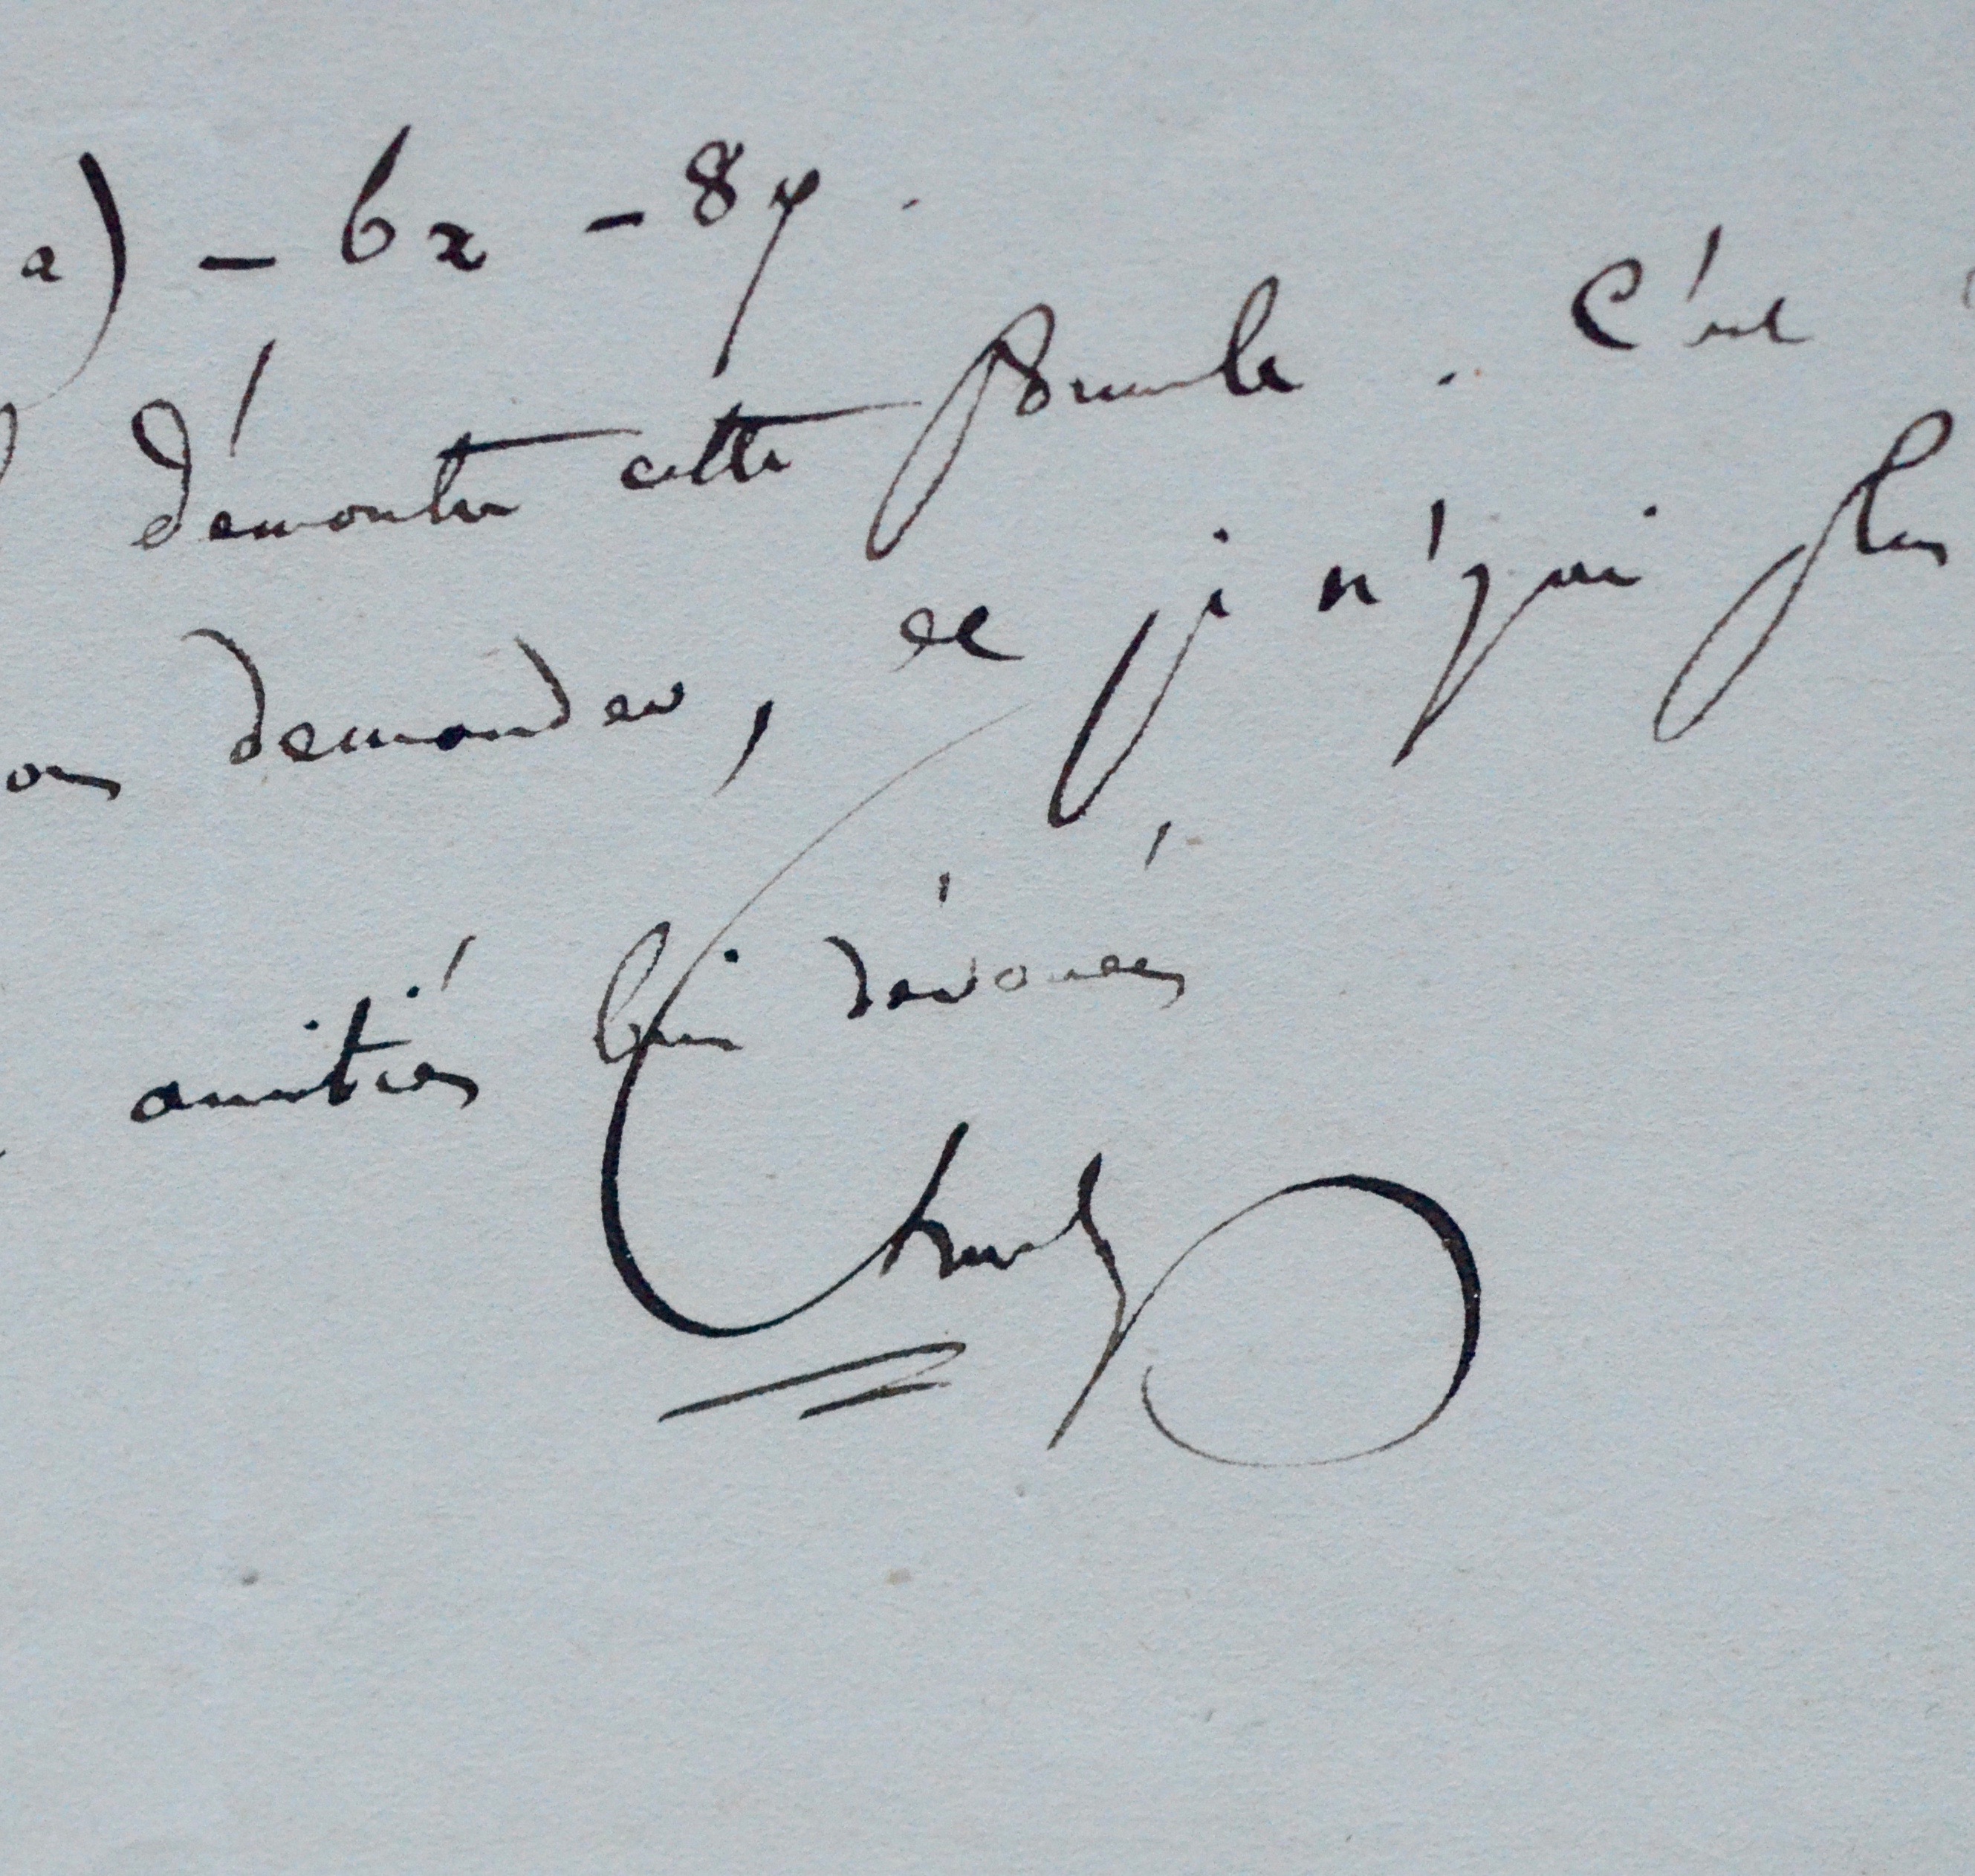 a) - 6x - 8y.
démontrer cette formule. C'est
demander, et je n'y ai plus
amitiés bien dévouées